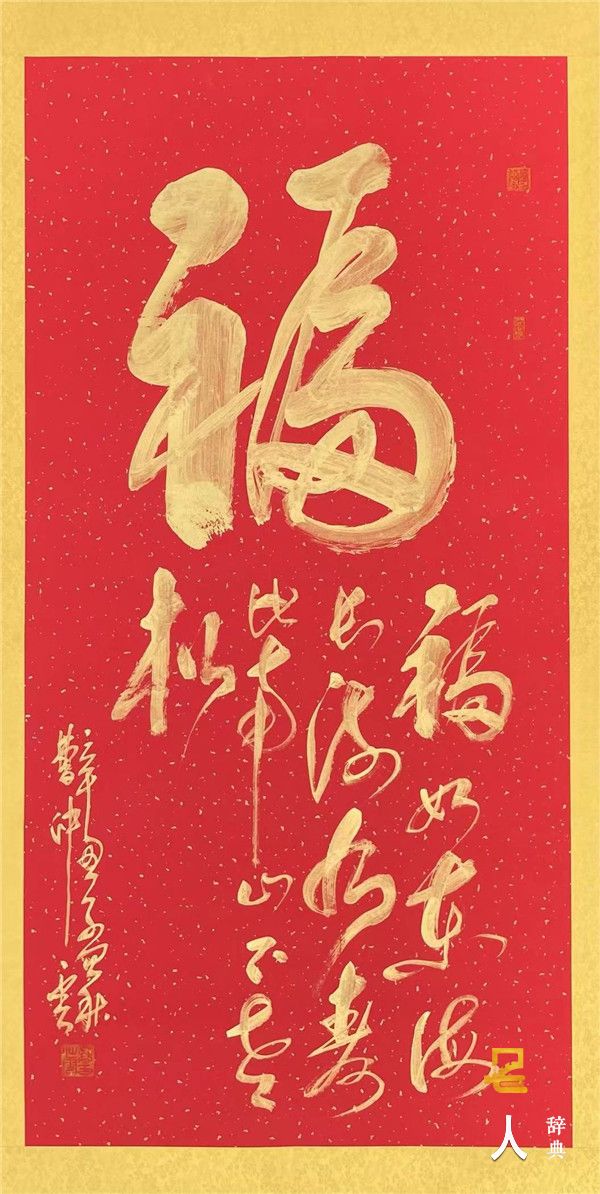 福
福如东海
长流水寿
比南山不老
松
名人
辞典